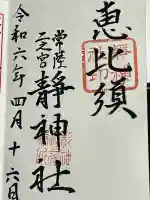 恵比須
常陸
二之宮
静神社
令和六年四月十六日